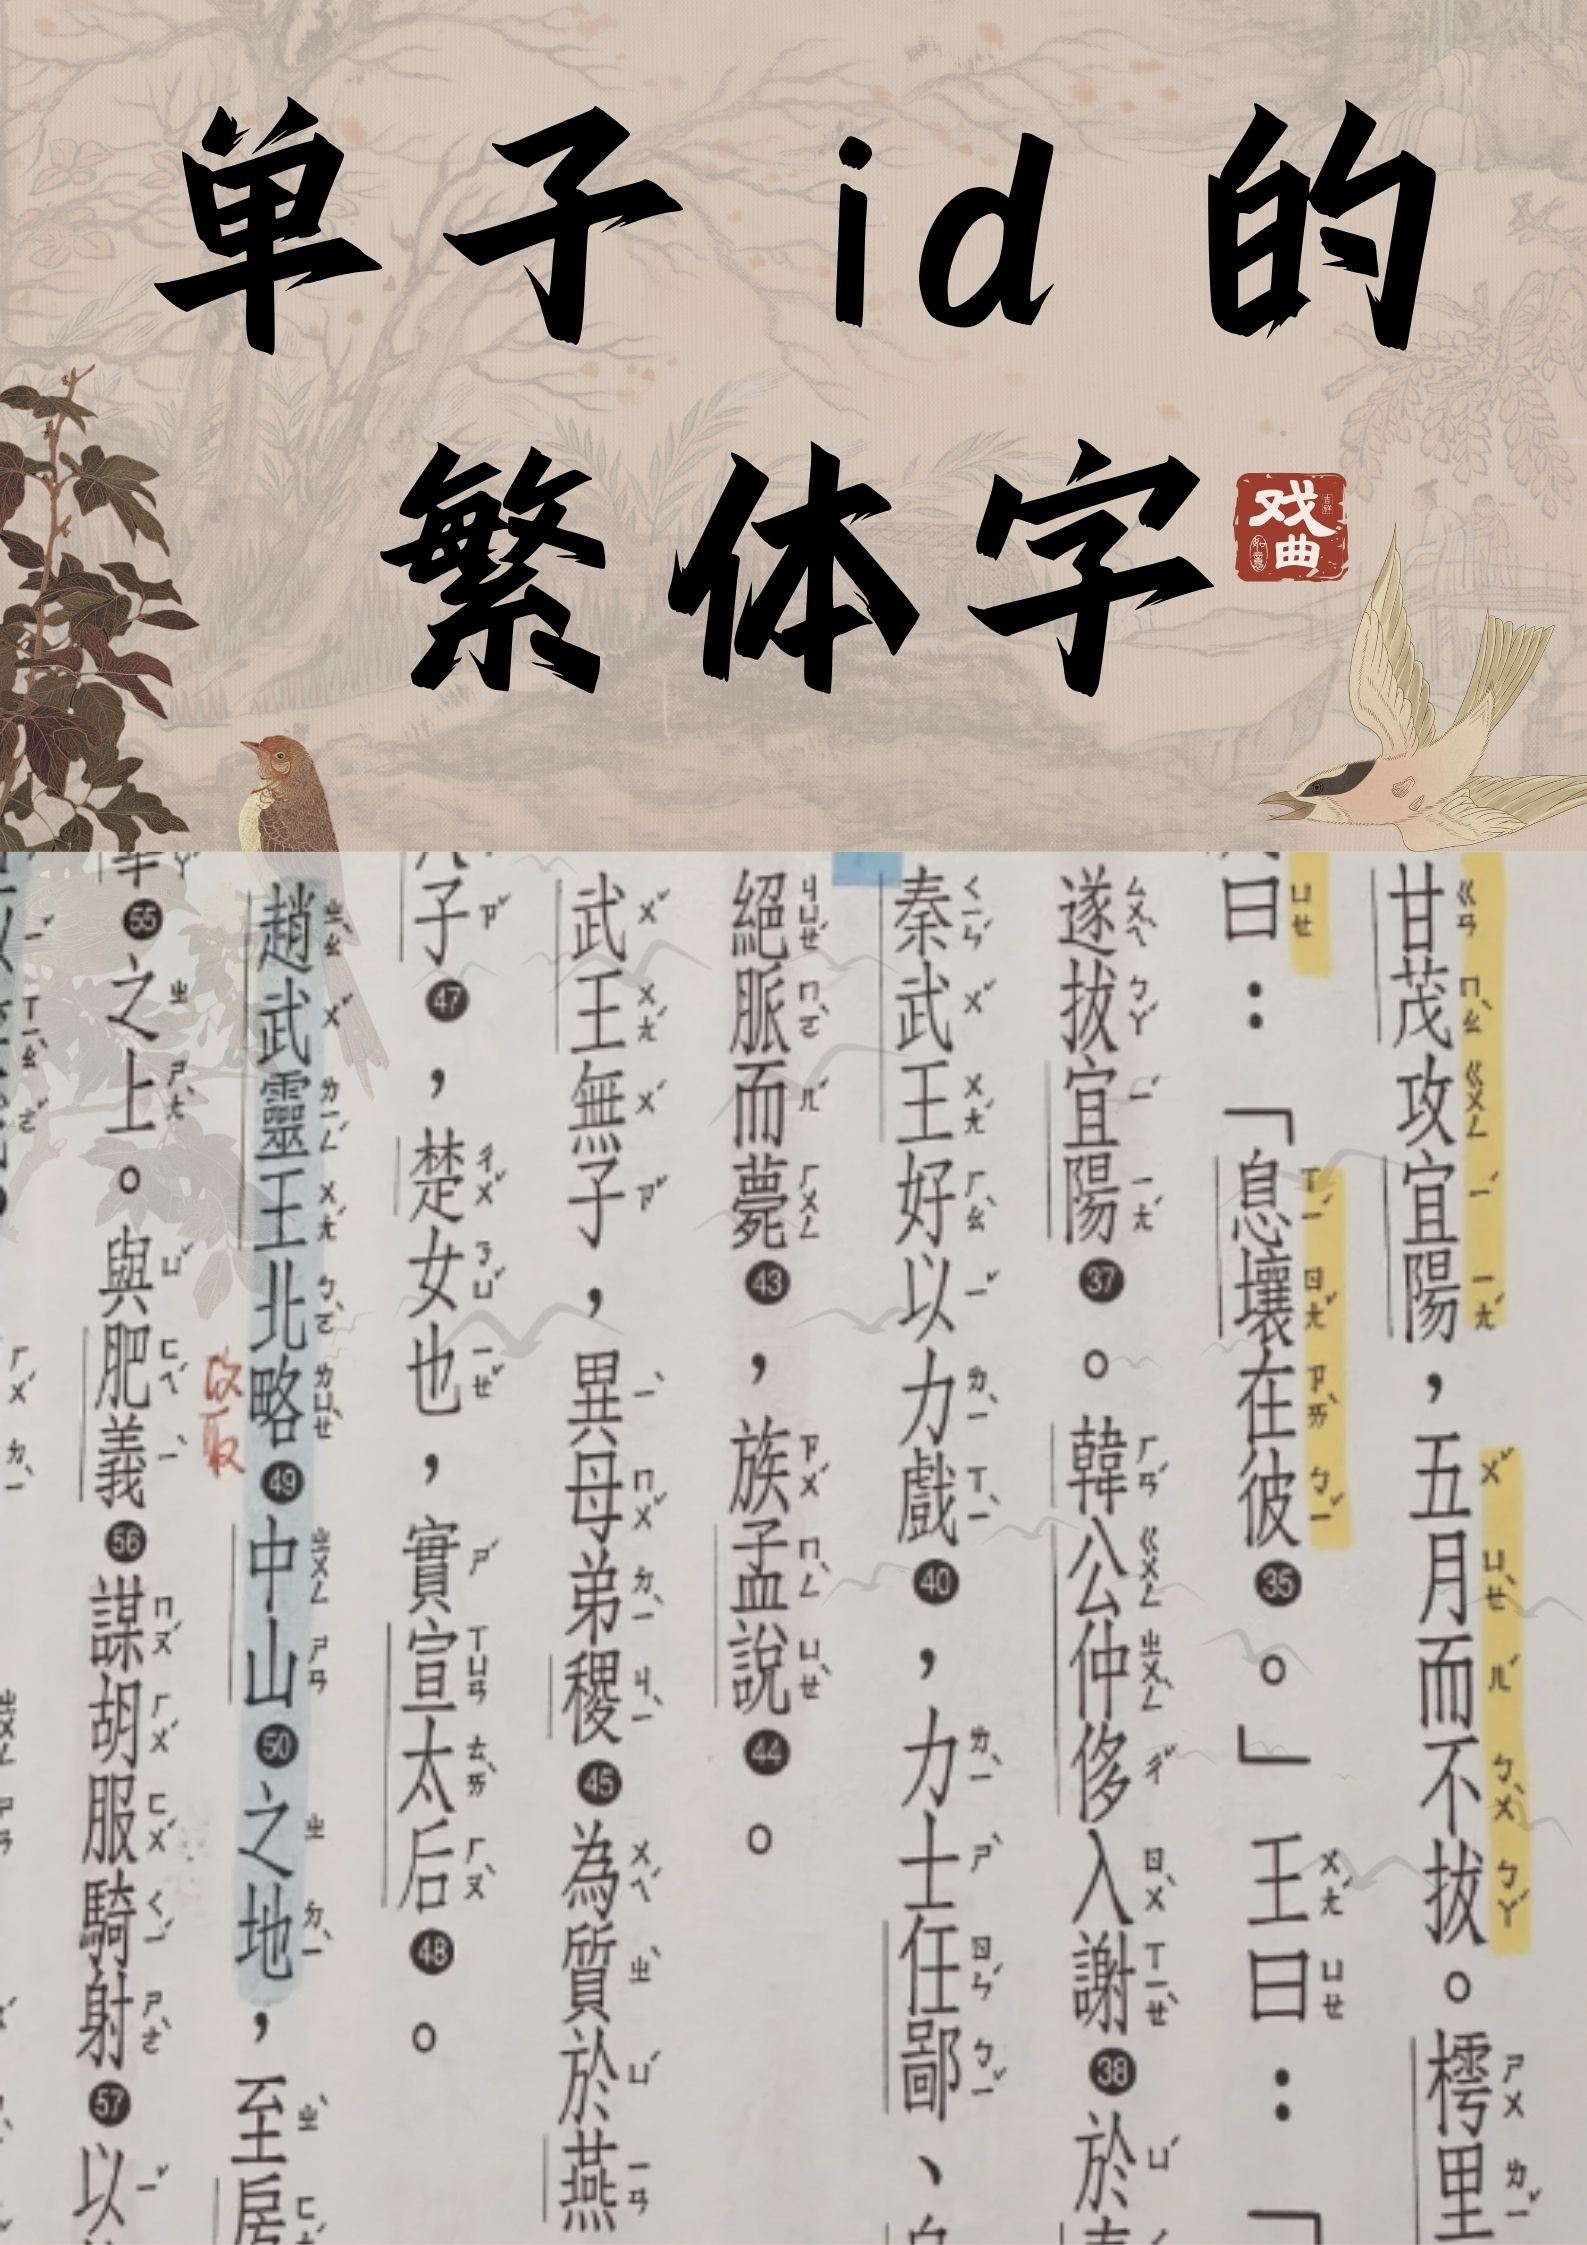 单子 id 的
繁体字
戏曲
甘茂攻宜陽，五月而不拔。樗里
曰：「息壤在彼㉟。」王曰：「
遂拔宜陽㊲。韓公仲侈入謝㊳於
秦武王好以力戲㊵，力士任鄙、
絕脈而薨㊸，族孟說㊹。
武王無子，異母弟稷㊺為質於燕
子㊼，楚女也，實宣太后㊽。
趙武靈王北略㊾中山㊿之地，至房
攻取
55之上。與肥義56謀胡服騎射57以